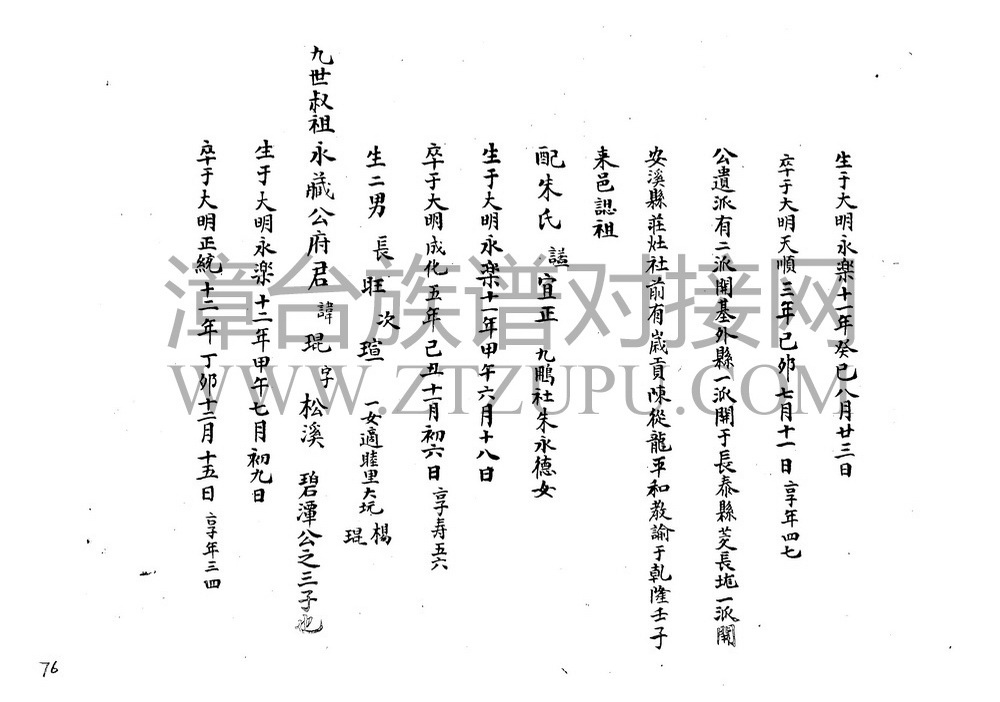 生于大明永楽十一年癸巳八月廿三日
卒于大明天順三年己夘七月十一日 享年四七
公遺派有二派開基外縣一派開于長泰縣芠長坨一派開
安溪縣莊灶社前有歲貢陳從龍平和教諭于乾隆壬子
来邑認祖
配朱氏 諡宜正 九鵰社朱永德女
生于大明永楽十一年甲午六月十八日
卒于大明成化五年己丑十二月初六日 享寿五六
生二男 長旺 次瑄 一女適睦里大坑楊琨
九世叔祖永藏公府君 諱琨 字松溪 碧潭公之三子也
生于大明永楽十二年甲午七月初九日
卒于大明正統十二年丁夘十二月十五日 享年三四
76
漳台族谱对接网
WWW.ZTZUPU.COM